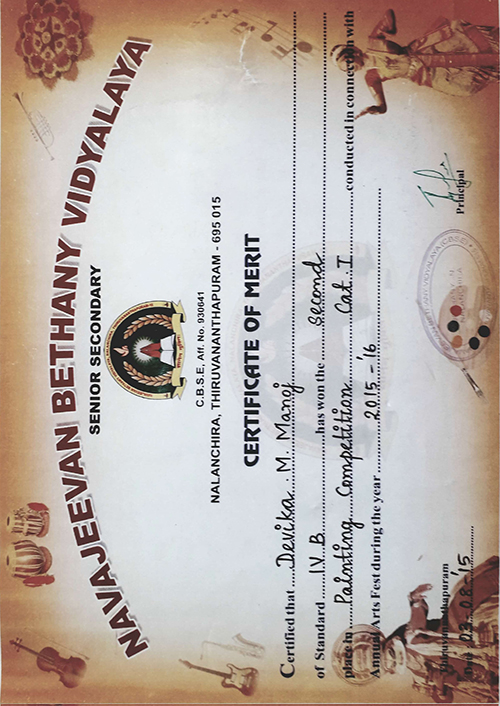 NAVAJEEVAN BETHANY VIDYALAYA
SENIOR SECONDARY
C.B.S.E, Aff. No. 930641
NALANCHIRA, THIRUVANANTHAPURAM - 695 015
CERTIFICATE OF MERIT
Certified that Devika . M. Manoj
of Standard IV. B has won the second
place in Painting Competition Cat. I conducted in connection with
Annual Arts Fest during the year 2015 - '16
Thiruvananthapuram
Date 03.08.'15
Principal